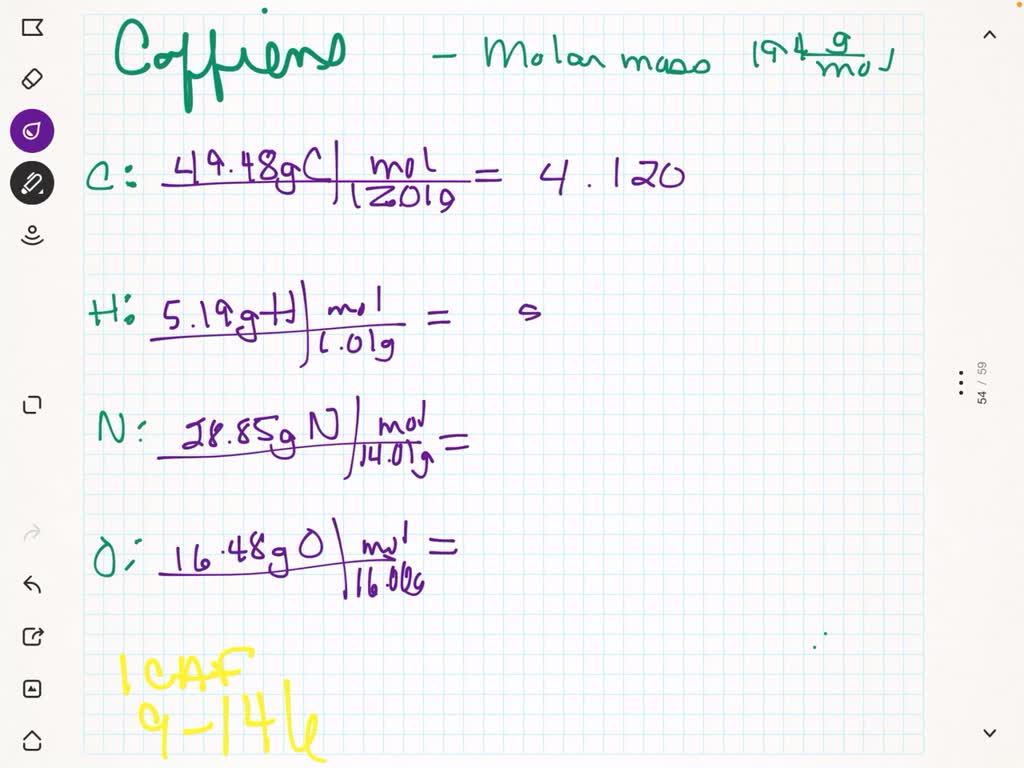 Coffiens - Molar mass 194 g/mol
C: 49.48gC | mol / 12.01g = 4.120
H: 5.19gH | mol / 1.01g = 5
N: 28.85g N | mol / 14.01g =
O: 16.48g O | mol / 16.00g =
1CAF
9-146
54 / 59